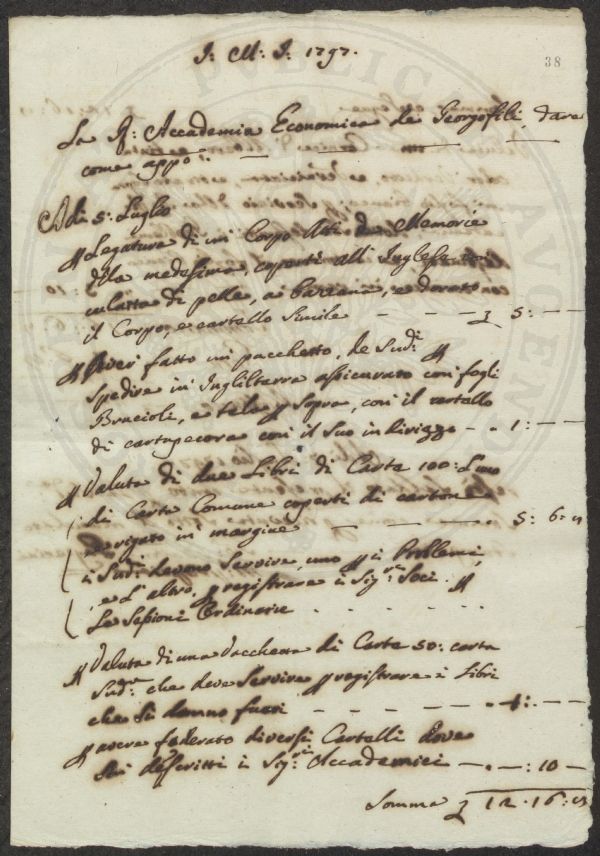 J: M: J: 1797.
38
La R: Accademia Economica de Georgofili, dare
come appo:
Adi 5: Luglio
Legatura di un Corpo Atti e Memorie
della medesima, coperti all' Inglese con
culatta di pelle, a bazzana, e dorato
il Corpo, e cartello Simile 5: — —
Aver fatto un pacchetto, de Sud:i
spedire in Inghilterra assicurato con fogli
Brucioli, e tela sopra, con il cartello
di cartapecora con il Suo indirizzo — 1: — —
Valuta di due Libri di Carte 100: l'uno
di Carta Comune coperti di cartone
e rigato in margine — — — 5: 6:
i Sud:i devono Servire, uno i Problemi,
e L'altro, registrare i Sig:ri Soci.
Le Sessioni Ordinarie
Valuta di una Vacchetta di Carte 50: carta
Sud:a che deve Servire registrare i Libri
che si danno fuori — — — 1: — —
avere foderato diversi Cartelli dove
Son descritti i Sig:ri Accademici — — : 10 —
Somma 12. 16:
PUBLICAE AUGENDO